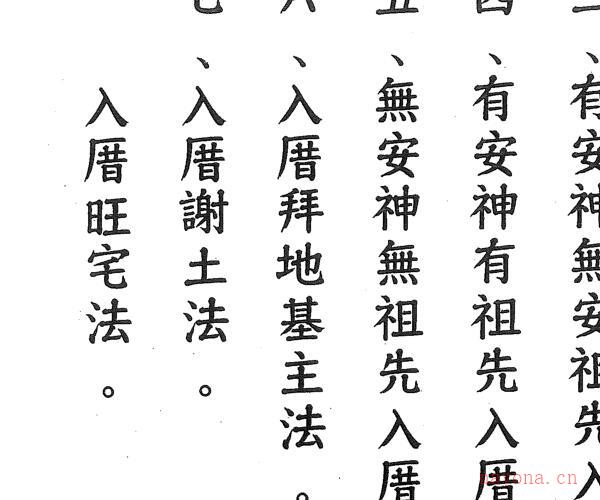 、有安神無安祖先入
四、有安神有祖先入厝
五、無安神無祖先入厝
六、入厝拜地基主法。
七、入厝謝土法。
入厝旺宅法。
nayona.cn